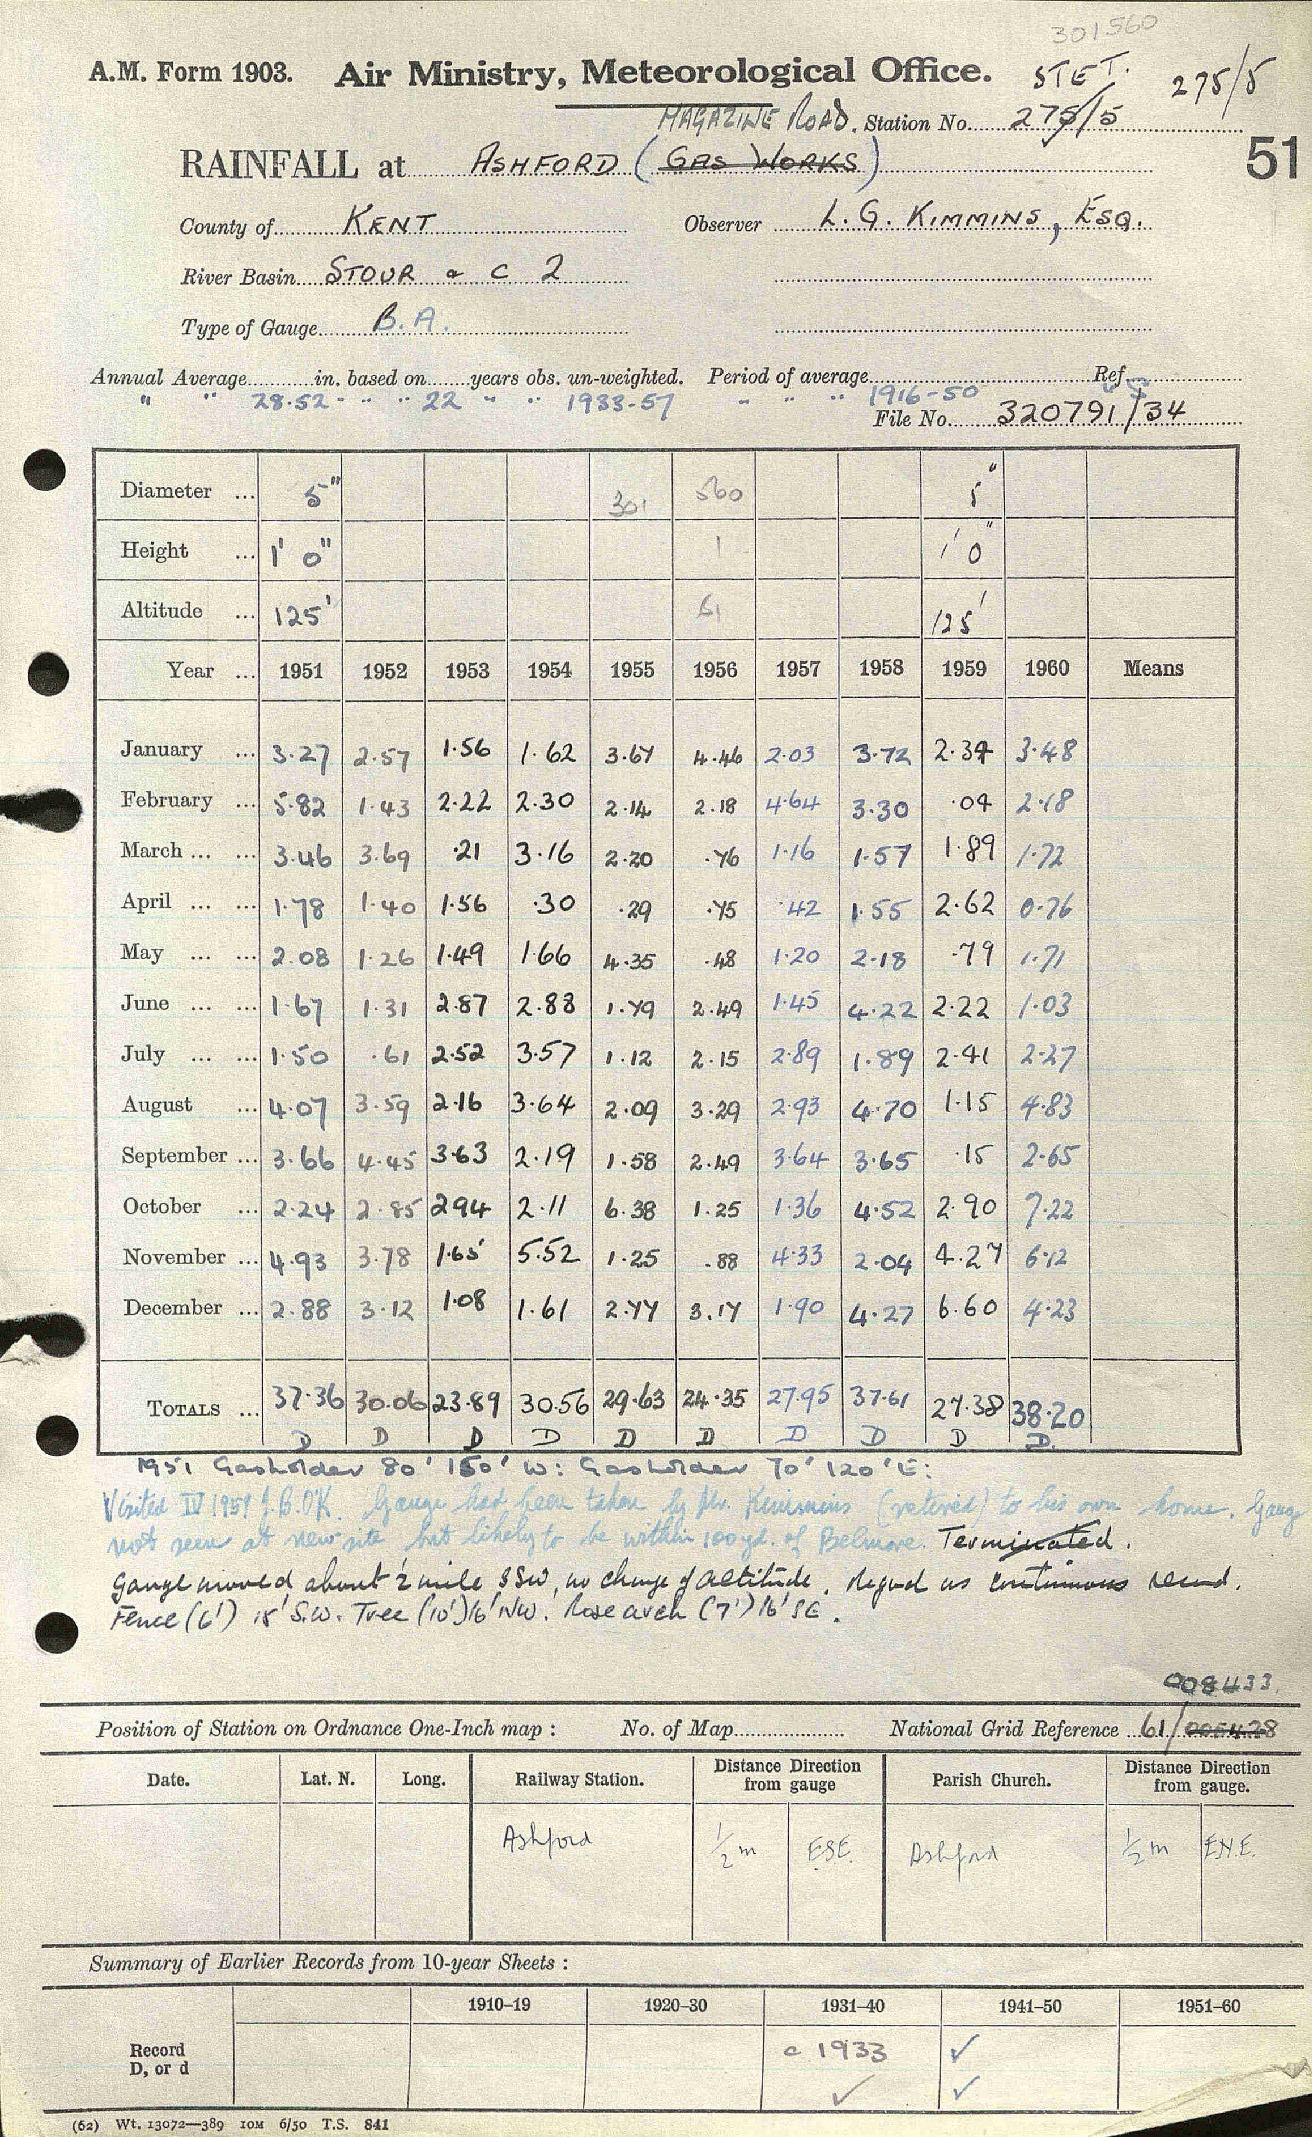 301560
A.M. Form 1903. Air Ministry, Meteorological Office. STET. 275/5
MAGAZINE ROAD. Station No. 275/5
RAINFALL at ASHFORD (GAS WORKS) 51
County of KENT Observer L. G. KIMMINS, ESQ.
River Basin STOUR & C 2
Type of Gauge B.A.
Annual Average in. based on years obs. un-weighted. Period of average Ref
" " 28.52 " " " 22 " " 1933-57 " " " 1916-50
File No. 320791/34
Diameter ... 5" 301 560 5"
Height ... 1' 0" 1 1' 0"
Altitude ... 125' 61 125'
Year ... 1951 1952 1953 1954 1955 1956 1957 1958 1959 1960 Means
January ... 3.27 2.57 1.56 1.62 3.67 4.46 2.03 3.72 2.34 3.48
February ... 5.82 1.43 2.22 2.30 2.14 2.18 4.64 3.30 .04 2.18
March ... ... 3.46 3.69 .21 3.16 2.20 .76 1.16 1.57 1.89 1.72
April ... ... 1.78 1.40 1.56 .30 .29 .75 .42 1.55 2.62 0.76
May ... ... 2.08 1.26 1.49 1.66 4.35 .48 1.20 2.18 .79 1.71
June ... ... 1.67 1.31 2.87 2.88 1.79 2.49 1.45 4.22 2.22 1.03
July ... ... 1.50 .61 2.52 3.57 1.12 2.15 2.89 1.89 2.41 2.27
August ... 4.07 3.59 2.16 3.64 2.09 3.29 2.93 4.70 1.15 4.83
September ... 3.66 4.45 3.63 2.19 1.58 2.49 3.64 3.65 .15 2.65
October ... 2.24 2.85 2.94 2.11 6.38 1.25 1.36 4.52 2.90 7.22
November ... 4.93 3.78 1.65 5.52 1.25 .88 4.33 2.04 4.27 6.12
December ... 2.88 3.12 1.08 1.61 2.77 3.17 1.90 4.27 6.60 4.23
TOTALS ... 37.36 30.06 23.89 30.56 29.63 24.35 27.95 37.61 27.38 38.20
D D D D D D D D D D
1951 Gasholder 80' 150' W: Gasholder 70' 120' E:
Visited IV 1959 J.B.O'K. Gauge had been taken by Mr. Kimmins (retired) to his own home. Gauge
not seen at new site but likely to be within 100 yd. of Belmore. Terminated.
Gauge moved about ½ mile SSW, no change of altitude. Regard as continuous record.
Fence (6') 15' S.W. Tree (10') 16' NW. Rose arch (7') 16' SE.
008433
Position of Station on Ordnance One-Inch map : No. of Map National Grid Reference 61/
Date. Lat. N. Long. Railway Station. Distance from gauge Direction Parish Church. Distance from gauge. Direction
Ashford ½ m ESE. Ashford ½ m E.N.E.
Summary of Earlier Records from 10-year Sheets :
1910–19 1920–30 1931–40 1941–50 1951–60
Record c 1933 ✓
D, or d ✓ ✓
(62) Wt. 13072—389 10M 6/50 T.S. 841